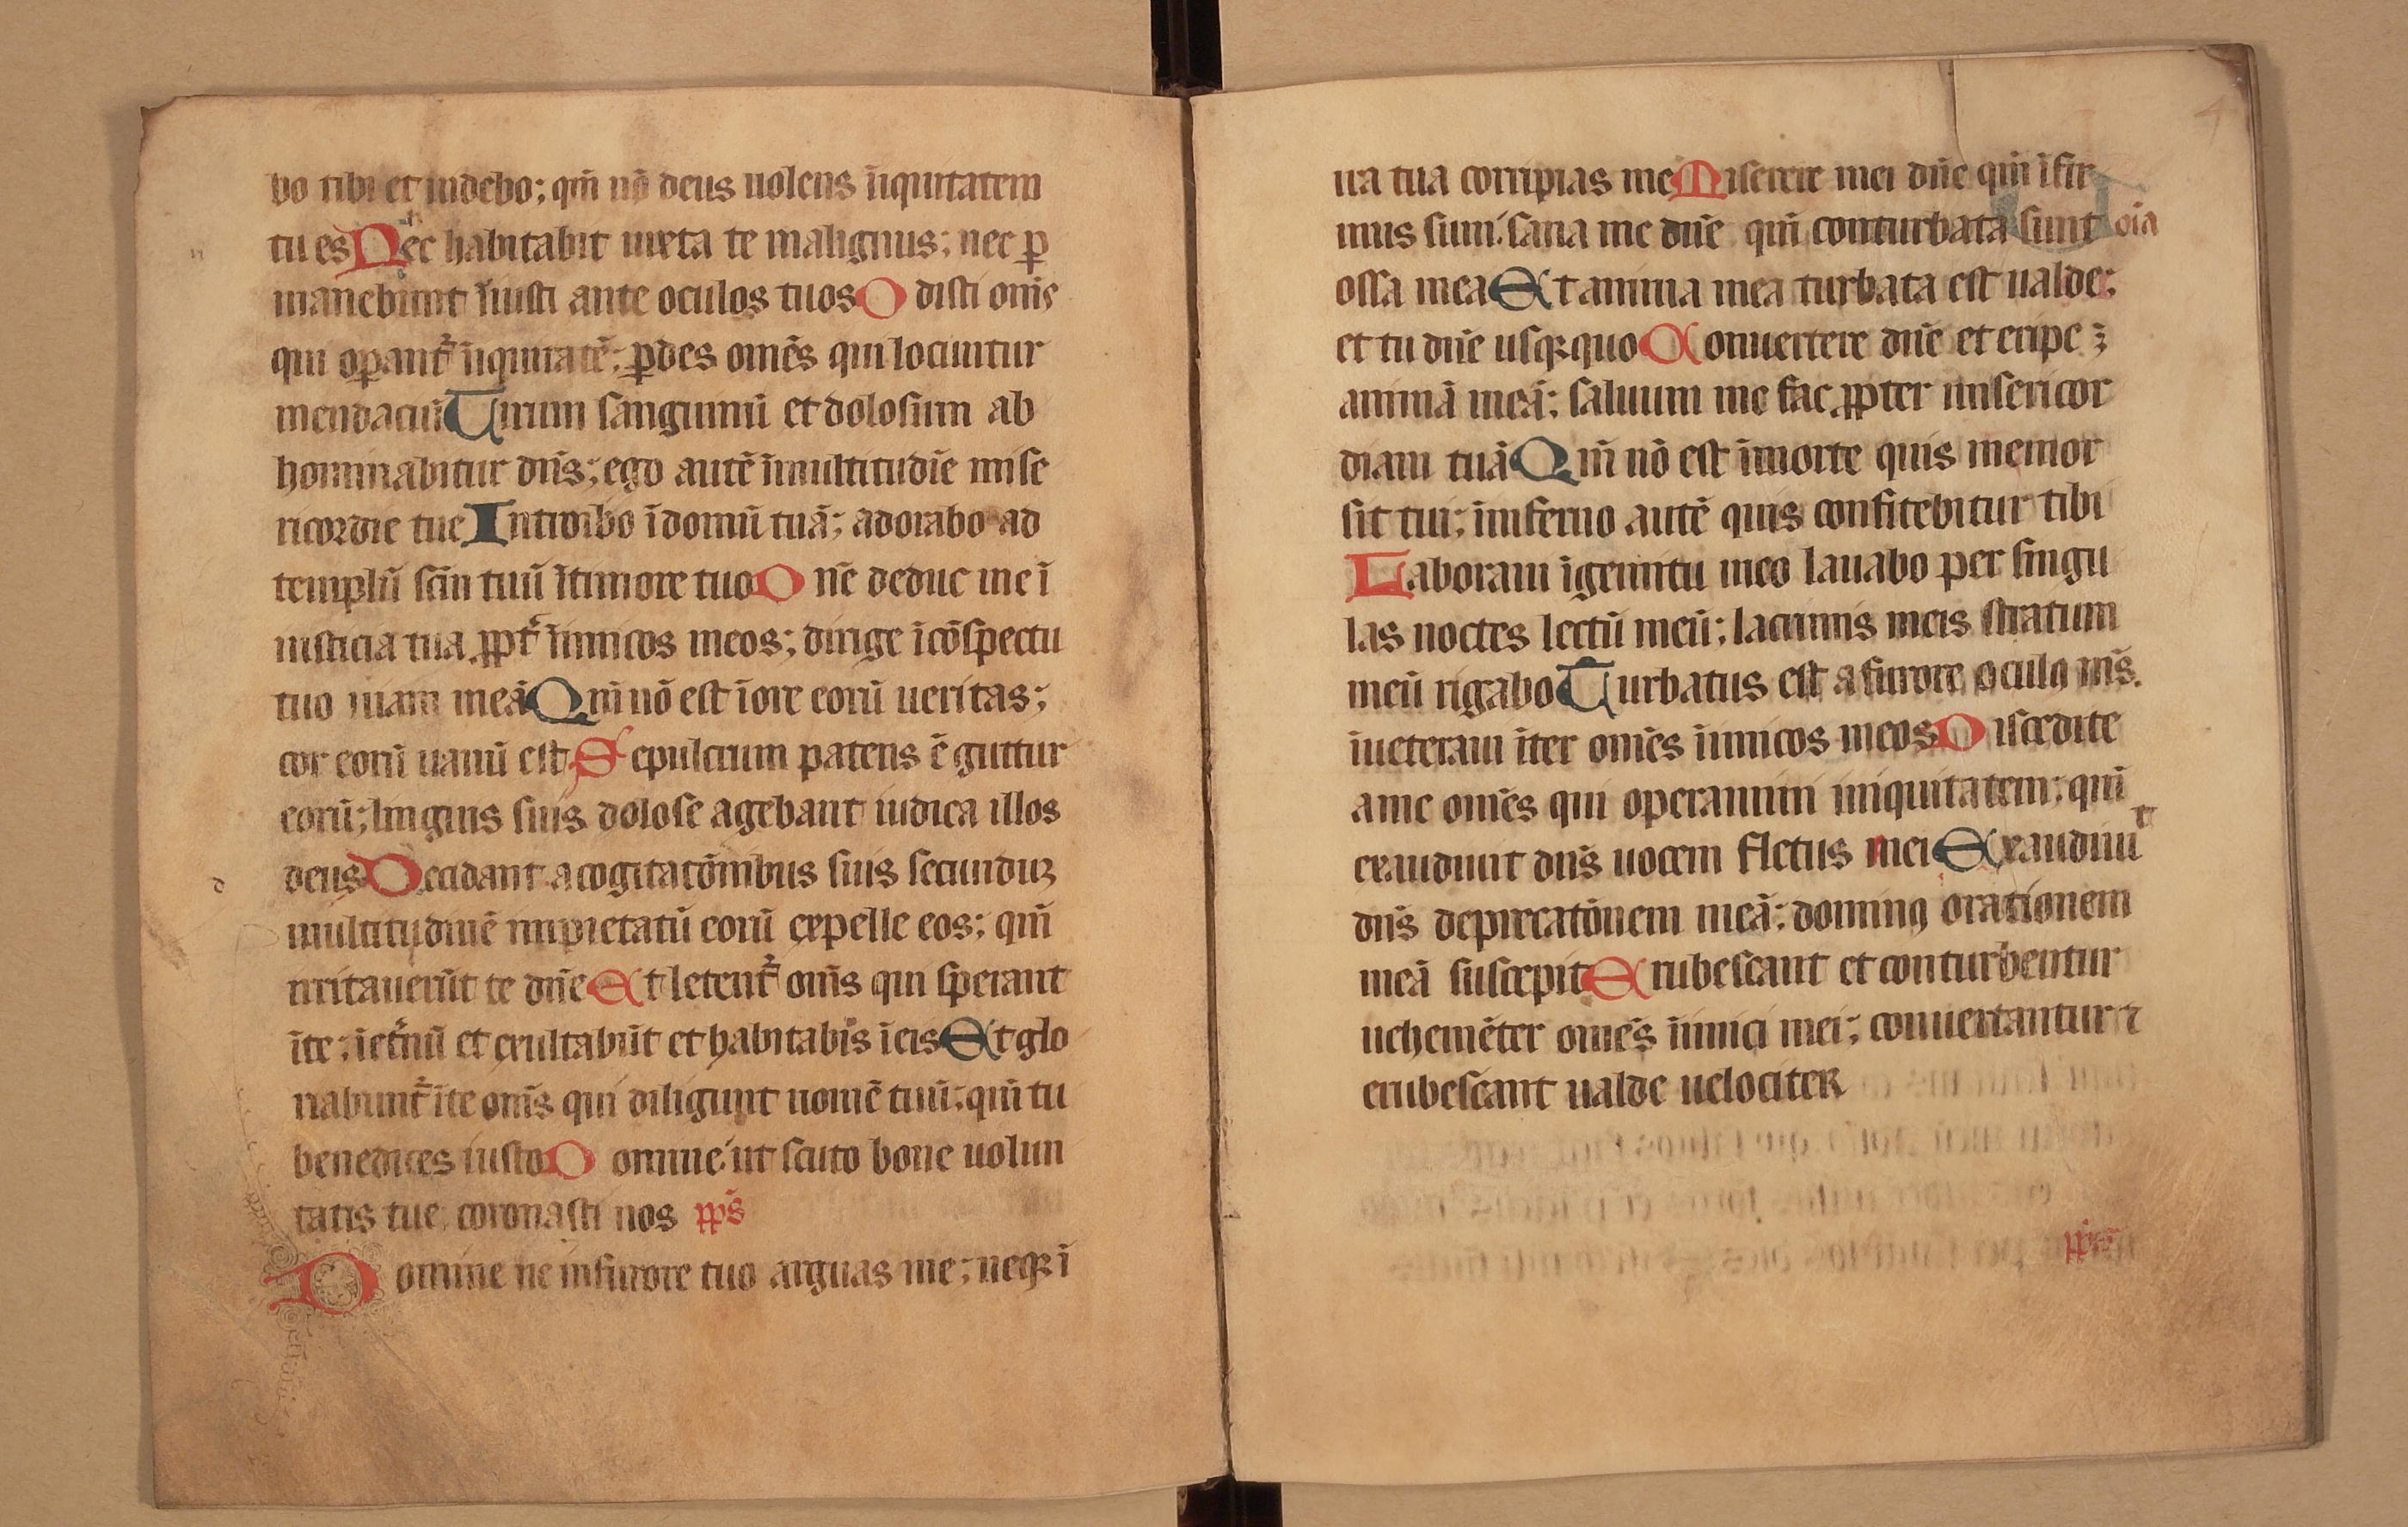 bo tibi et uidebo; qm̄ nō deus uolens īiquitatem
tu es Nec habitabit iuxta te malignus; nec ꝑ
manebunt īiusti ante oculos tuos Odisti om̄s
qui oꝑant᷑ īiquitatē; ꝑdes om̄es qui locuntur
mendaciū Uirum sanguinū et dolosum ab
hominabitur dn̄s; ego autē īmultitudīe mise
ricordie tue Introibo īdomū tuā; adorabo ad
templū sc̄m tuū ītimore tuo Dn̄e deduc me ī
iusticia tua ꝓpt᷑ īimicos meos; dirige īcōspectu
tuo uiam meā Qm̄ nō est īore eorū ueritas;
cor eorū uanū est Sepulcrum patens ē guttur
eorū; linguis suis dolose agebant iudica illos
d
deus Decidant a cogitatōnibus suis secunduꝫ
multitudinē impietatū eorū expelle eos; qm̄
irritauerūt te dn̄e Et letent᷑ om̄s qui sperant
īte; īet᷑nū et exultabūt et habitabis īeis Et glo
riabunt᷑ īte om̄s qui diligunt nomē tuū; qm̄ tu
benedices iusto Domine ut scuto bone uolun
tatis tue coronasti nos p̄s̄
Domine ne infurore tuo arguas me; neqꝫ ī
ira tua corripias me Miserere mei dn̄e qm̄ īfir
mus sum sana me dn̄e qm̄ conturbata sunt oīa
ossa mea Et anima mea turbata est ualde;
et tu dn̄e usqꝫquo Conuertere dn̄e et eripe
animā meā; saluum me fac ꝓpter misericor
diam tuā Qm̄ nō est īmorte quis memor
sit tui; īinferno autē quis confitebitur tibi
Laboraui īgemitu meo lauabo per singu
las noctes lectū meū; lacrimis meis stratum
meū rigabo Turbatus est a furore oculꝰ ms̄.
īueteraui īter om̄es īimicos meos Discedite
ame om̄es qui operamini iniquitatem; qm̄
exaudiuit dn̄s uocem fletus mei Exaudiuit
dn̄s deprecatōnem meā; dominꝰ orationem
meā suscepit Erubescant et conturbentur
uehemēter om̄es īimici mei; conuertantur ⁊
erubescant ualde uelociter